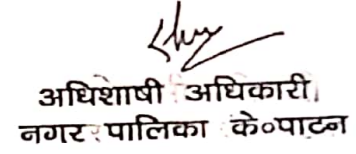 अधिशाषी अधिकारी
नगर पालिका के०पाटन